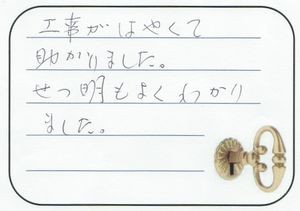 工事がはやくて
助かりました。
せつ明もよくわかり
ました。